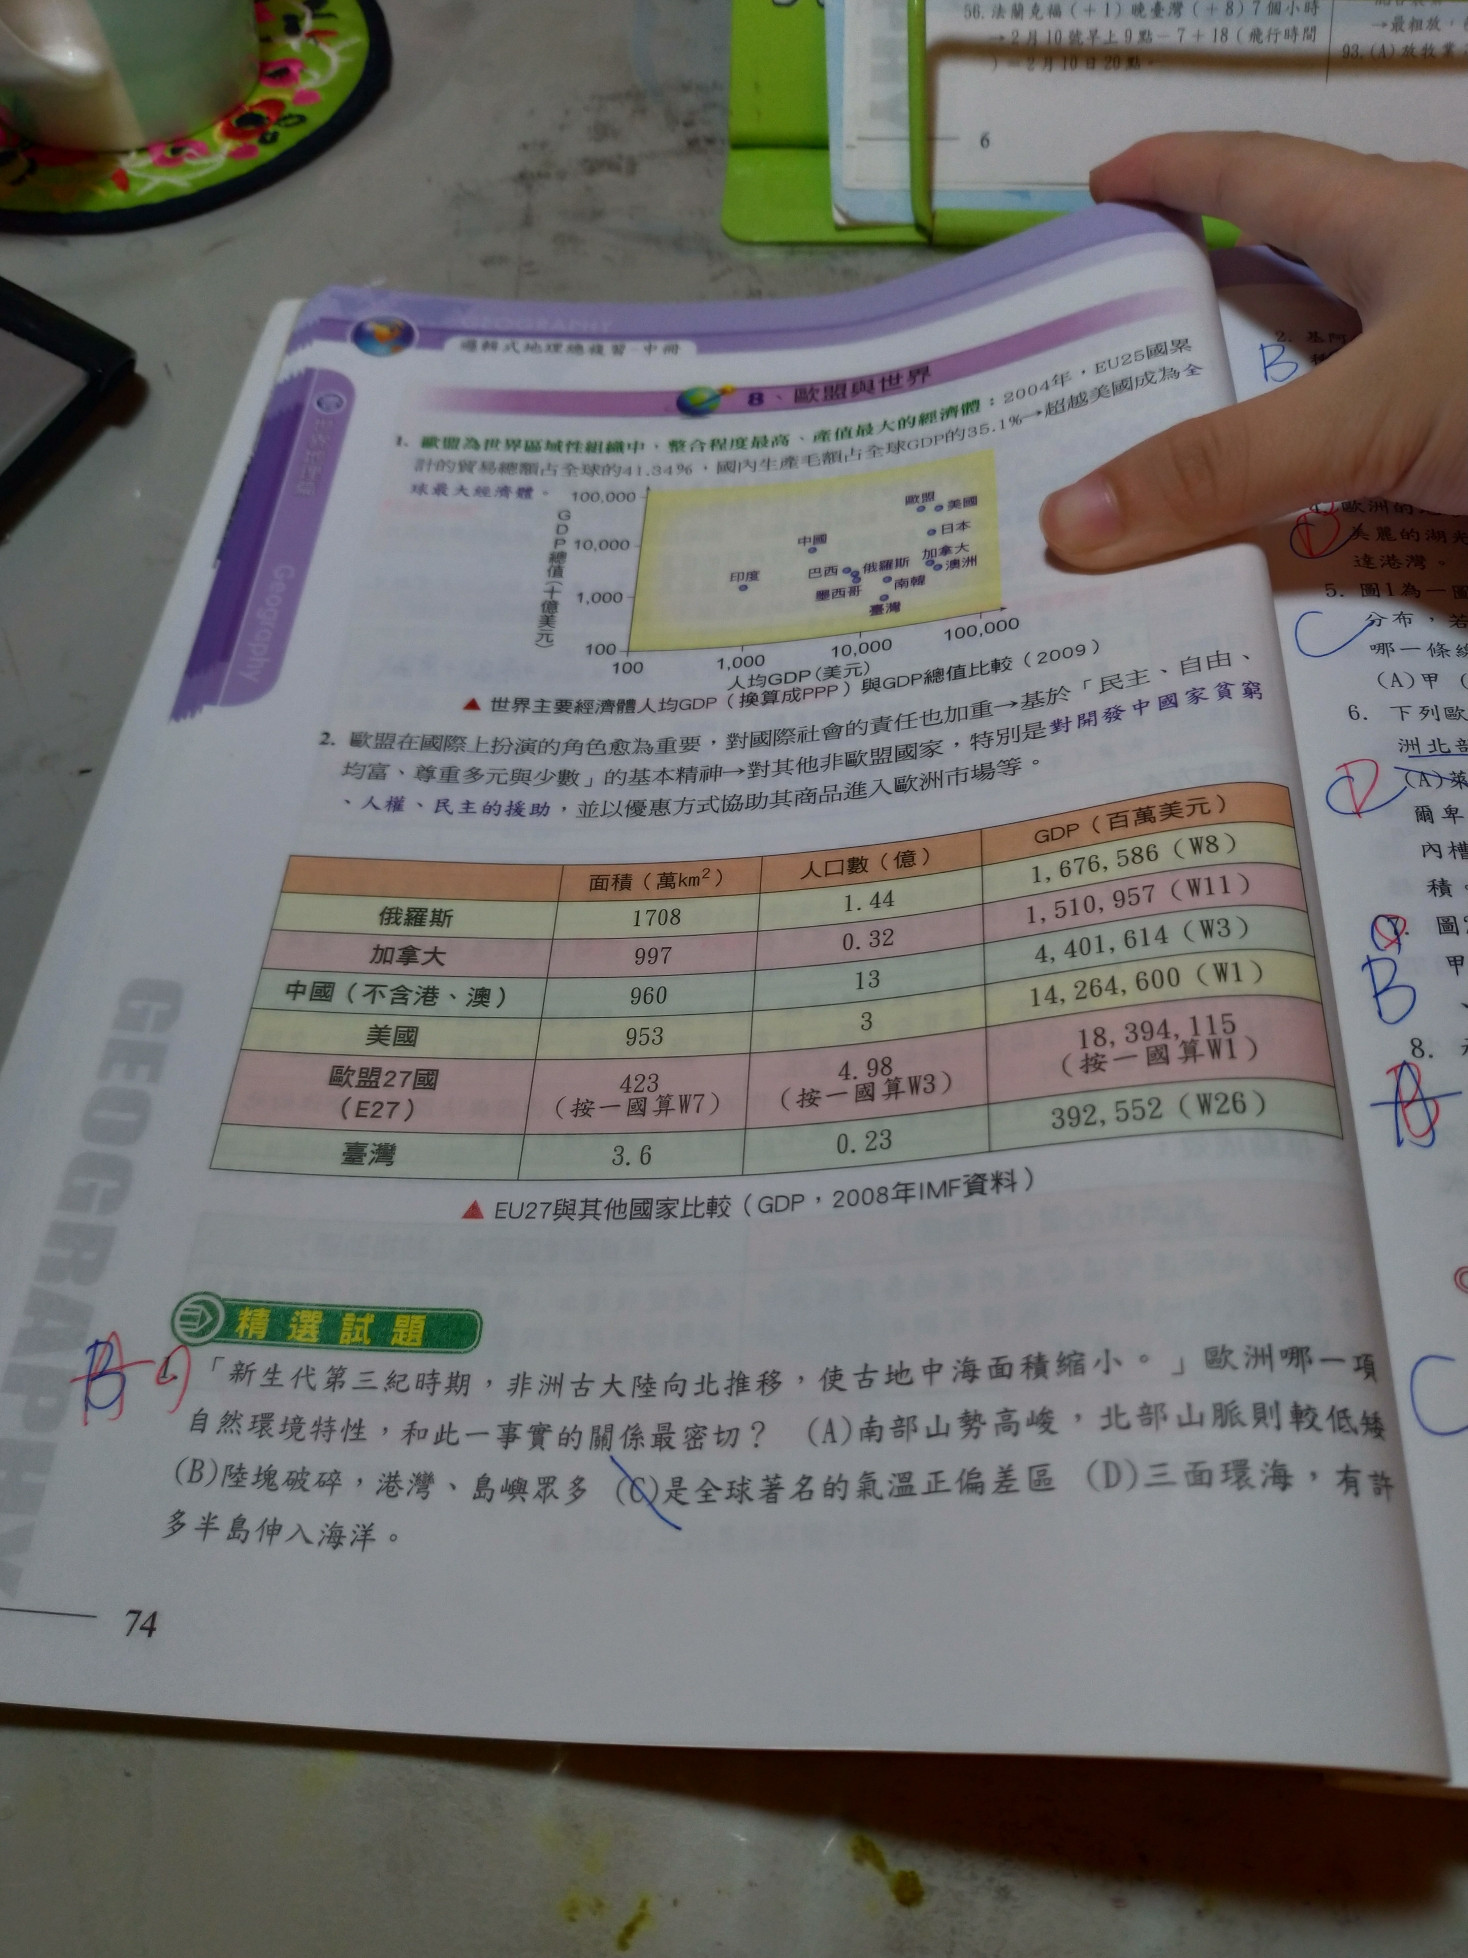 56. 法蘭克福(+1)晚臺灣(+8)7個小時
→2月10號早上9點-7+18(飛行時間
)=2月10日20點。
→最粗放,
93.(A)放牧業
6
GEOGRAPHY
邏輯式地理總複習-中冊
Geography
8、歐盟與世界
1. 歐盟為世界區域性組織中,整合程度最高、產值最大的經濟體:2004年,EU25國累
計的貿易總額占全球的41.34%,國內生產毛額占全球GDP的35.1%→超越美國成為全
球最大經濟體。
GDP總值(十億美元)
100,000
10,000
1,000
100
歐盟
美國
日本
中國
加拿大
印度
巴西
俄羅斯
澳洲
墨西哥
南韓
臺灣
100
1,000
10,000
100,000
人均GDP(美元)
▲ 世界主要經濟體人均GDP(換算成PPP)與GDP總值比較(2009)
2. 歐盟在國際上扮演的角色愈為重要,對國際社會的責任也加重→基於「民主、自由、
均富、尊重多元與少數」的基本精神→對其他非歐盟國家,特別是對開發中國家貧窮
、人權、民主的援助,並以優惠方式協助其商品進入歐洲市場等。
面積(萬km²) 人口數(億) GDP(百萬美元)
俄羅斯 1708 1.44 1,676,586(W8)
加拿大 997 0.32 1,510,957(W11)
中國(不含港、澳) 960 13 4,401,614(W3)
美國 953 3 14,264,600(W1)
歐盟27國 423 4.98 18,394,115
(E27) (按一國算W7) (按一國算W3) (按一國算W1)
臺灣 3.6 0.23 392,552(W26)
▲ EU27與其他國家比較(GDP,2008年IMF資料)
精選試題
B A 1. 「新生代第三紀時期,非洲古大陸向北推移,使古地中海面積縮小。」歐洲哪一項
自然環境特性,和此一事實的關係最密切? (A)南部山勢高峻,北部山脈則較低矮
(B)陸塊破碎,港灣、島嶼眾多 (C)是全球著名的氣溫正偏差區 (D)三面環海,有許
多半島伸入海洋。
GEOGRAPHY
74
2.
B
歐洲的
美麗的湖光
達港灣。
5. 圖1為一
C 分布,若
哪一條線
(A)甲
6. 下列歐
洲北部
D (A)萊
爾卑
內槽
積
7. 圖
B 甲
8.
C